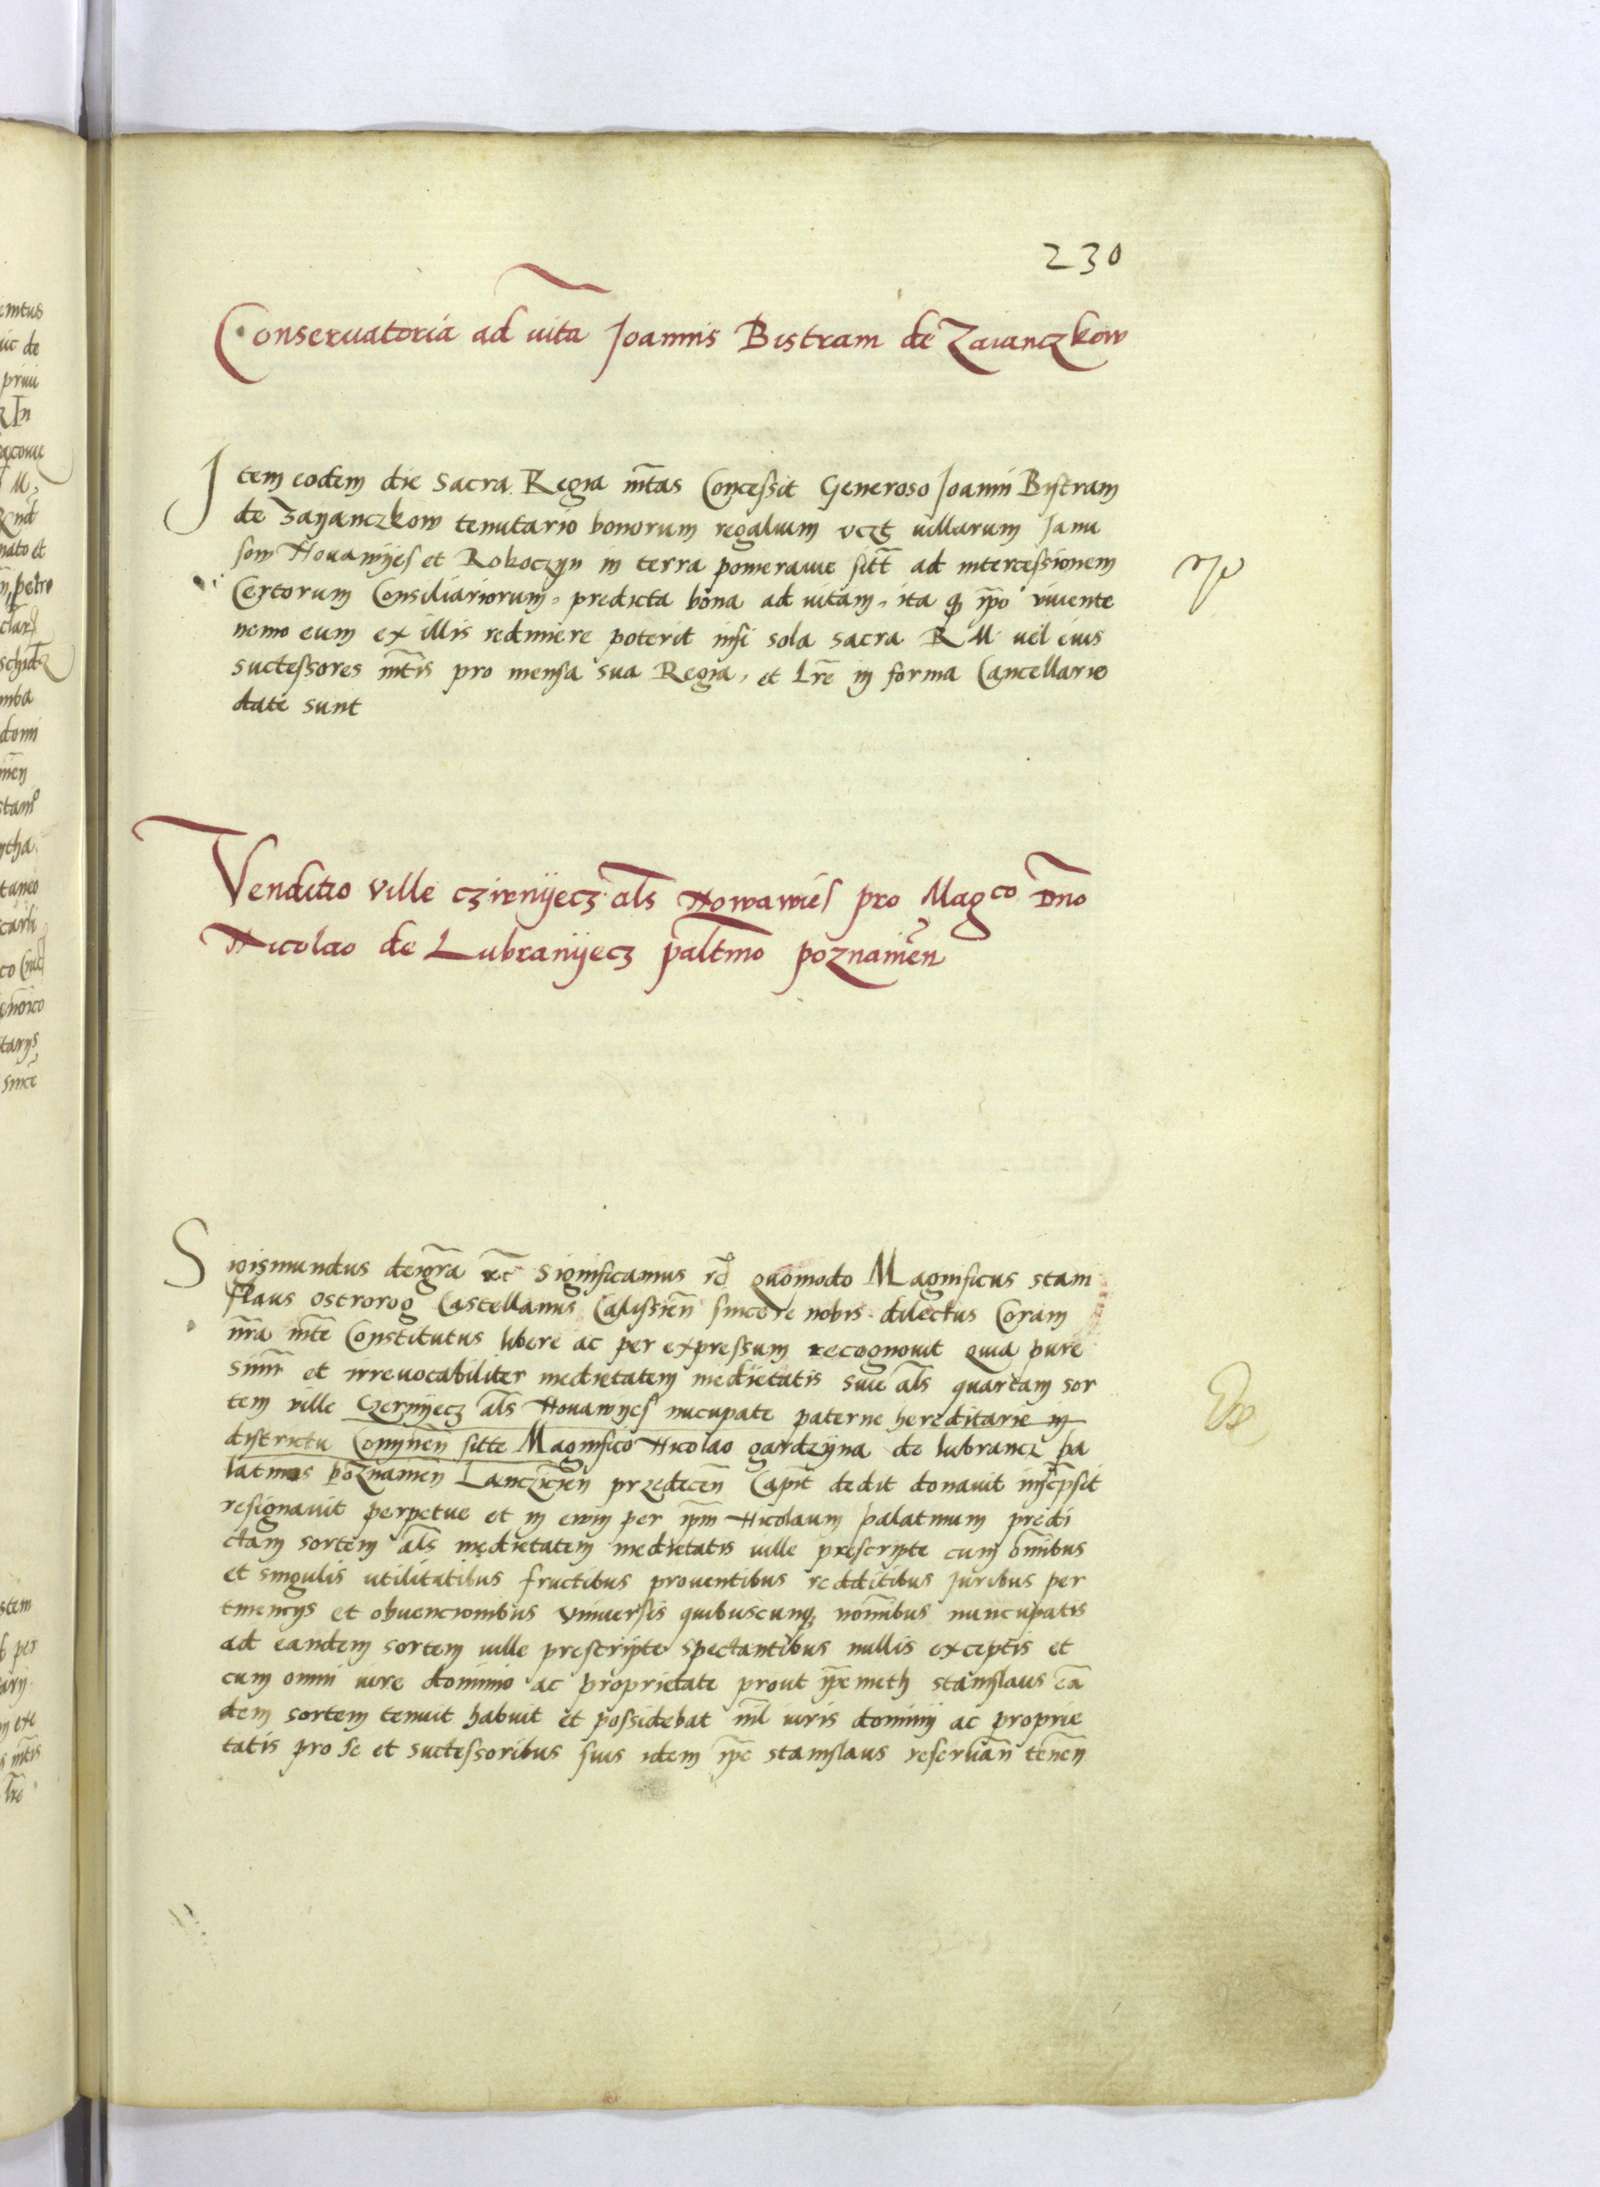 230
Conseruatoria ad uitã Joannis Bistram de Zaianczkow
Item eodem die Sacra Regia mt̃as Concessit Generoso Joanni Bistram
de Zayanczkow tenutario bonorum regalium vczt uillarum Janu
sow Novawyes et Rokoczyn in terra pomeranie sitt̃ ad intercessionem
Certorum Consiliariorum, predicta bona ad uitam, ita q ip̃o viuente
nemo eum ex illis redimere poterit nisi sola sacra R M uel eius
successores mt̃is pro mensa sua Regia, et Lr̃e in forma Cancellarie
date sunt
Venditio ville czirnyecz al̃s Nowawies pro Magco Dño
Nicolao de Lubranyecz palt̃ino poznanieñ
Sigismundus dei gr̃a etc̃ Significamus quomodo Magnificus stani
slaus ostrorog Castellanus Calissieñ sincere nobis dilectus Coram
nr̃a mt̃e Constitutus libere ac per expressum recognouit quia pure
et irreuocabiliter medietatem medietatis sue al̃s quartam sor
tem ville Czernyecz al̃s Novawyes nucupate paterne hereditarie in
districtu Conyneñ sitte Magnifico Nicolao gardzyna de lubrancz pa
latinos poznanieñ Lanczicieñ przedeceñ Capit̃ dedit donauit inscr̃psit
resignauit perpetue et in ewm per ip̃m Nicolaum palatinum predi
ctam sortem al̃s medietatem medietatis uille prescripte cum om̃ibus
et singulis utilitatibus fructibus prouentibus redditibus Juribus per
tinencijs et obuencionibus Vniuersis quibuscunq nom̃ibus nuncupatis
ad eandem sortem uille prescripte spectantibus nullis exceptis et
cum omni iure dominio ac proprietate prout ip̃emeth stanislaus eã
dem sortem tenuit habuit et possidebat nil̃ iuris dominij ac proprie
tatis pro se et successoribus suis idem ip̃e stanislaus reseruañ teneñ